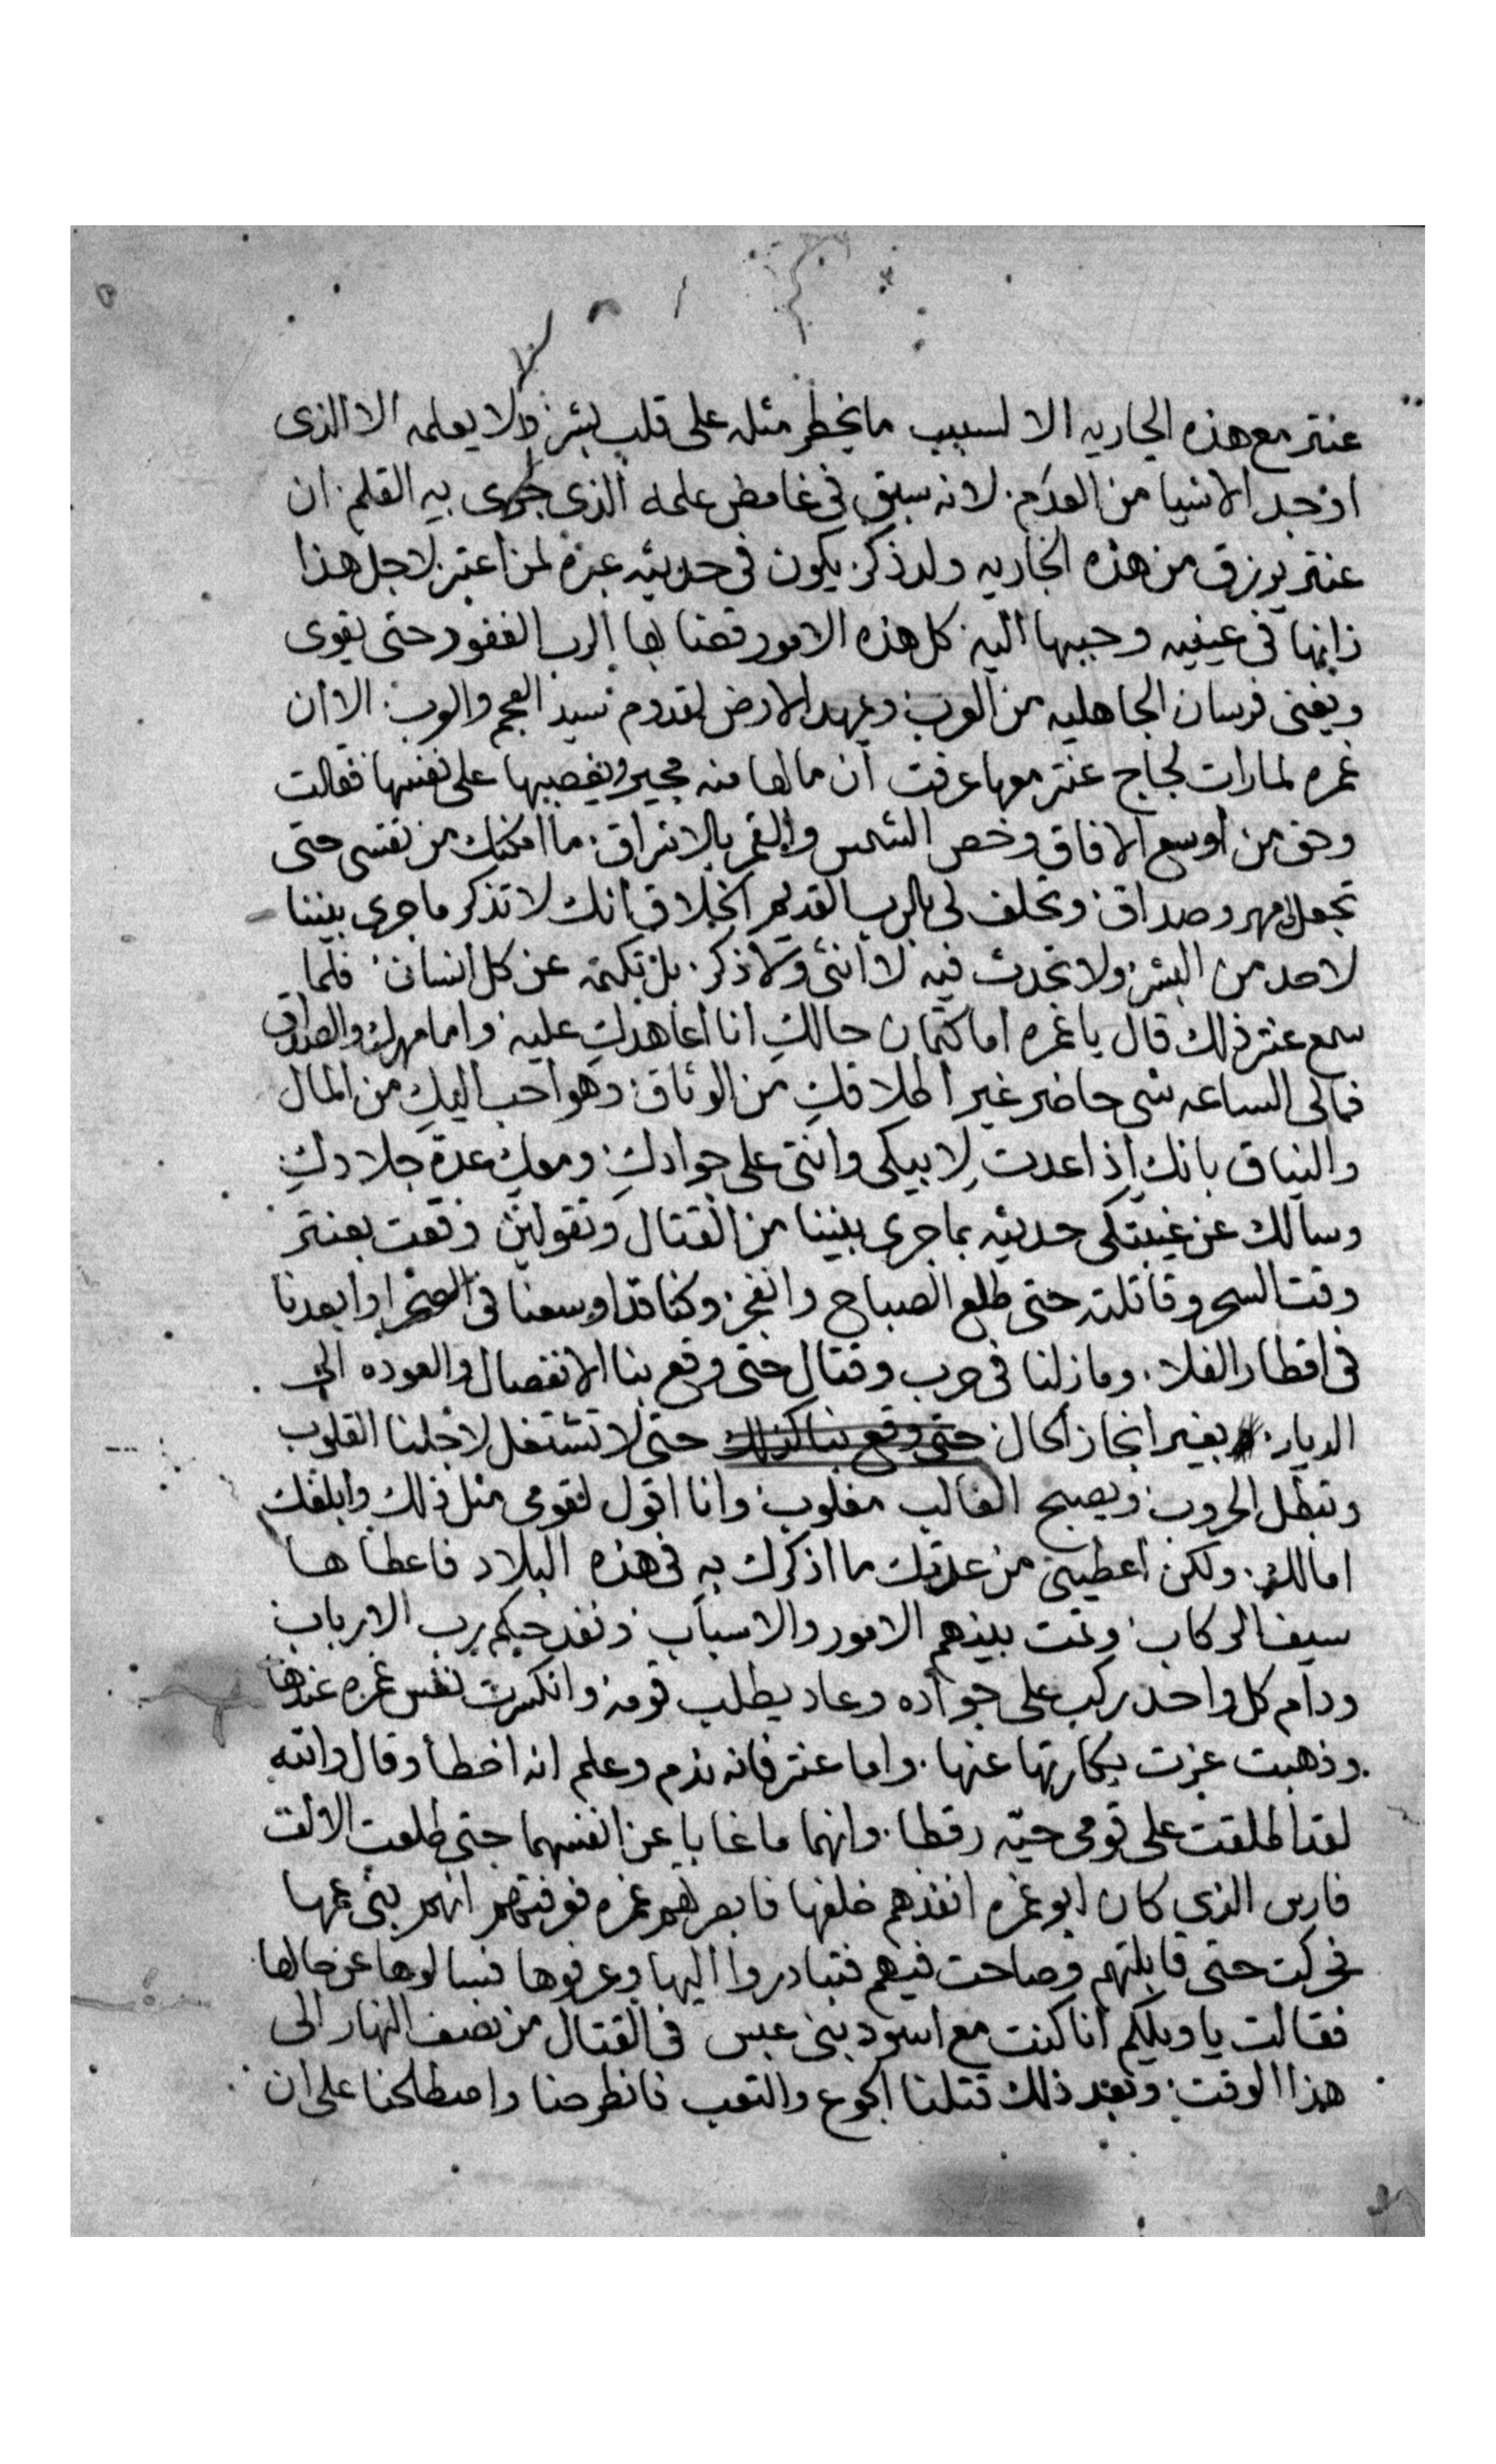 عنتر مع هذه الجاريه الا لسبب ما يخطر مثله على قلب بشر ولا يعلمه الا الذى
اوجد الاشيا من العدم. لانه سبق فى غامض علمه الذى جرى به القلم. ان
عنتر يرزق من هذه الجاريه ولد ذكر يكون فى حديثه عبرة لمن اعتبر. لاجل هذا
زانها فى عينيه وحببها اليه. كل هذه الامور قضا بها الرب الغفور حتى يقوى
ويفنى فرسان الجاهليه من العرب ويمهد الارض لقدوم سيد العجم والعرب. الا ان
غمره لما رات لجاج عنتر معها عرفت ان ما لها منه مجير ويغصبها على نفسها فقالت
وحق من اوسع الافاق وخص الشمس والقمر بالاشراق. ما امكنك من نفسى حتى
تجعل لى مهر وصداق. وتحلف لى بالرب القديم الخلاق انك لا تذكر ما جرى بيننا
لاحد من البشر ولا تحدث فيه لا انثى ولا ذكر. بل تكتمه عن كل انسان. فلما
سمع عنتر ذلك قال يا غمره اما كتمان حالك انا اعاهدك عليه. واما مهرك والصداق
فما لى الساعه شى حاضر غير اطلاقك من الوثاق. وهو احب اليك من المال
والنياق بانك اذا عدت لابيكى وانتى على جوادك. ومعك عدة جلادك.
وسالك عن غيبتكى حدثيه بما جرى بيننا من القتال وتقولين وقعت بعنتر
وقت السحر وقاتلته حتى طلع الصباح وانفجر. وكنا قد اوسعنا فى الصحرا وابعدنا
فى اقطار الفلا. وما زلنا فى حرب وقتال حتى وقع بنا الانفصال والعوده الى
الديار. بغير انجاز الحال حتى وقع بنا كذلك حتى لا تشتغل لاجلنا القلوب
وتبطل الحروب. ويصبح الغالب مغلوب. وانا اقول لقومى مثل ذلك وابلغك
امالك. ولكن اعطينى من عدتك ما اذكرك به فى هذه البلاد فاعطاها
سيف الركاب. وتمت بينهم الامور والاسباب ونفد حكم رب الارباب.
ودام كل واحد ركب على جواده وعاد يطلب قومه وانكسرت نفس غمره عندها
وذهبت عزت بكارتها عنها. واما عنتر فانه ندم وعلم انه اخطا وقال والله
لقد اطلقت على قومى حيّه رقطا. وانهما ما غابا عن انفسهما حتى طلعت الالف
فارس الذى كان ابو غمره انفذهم خلفها فابصرهم غمره فعرفتهم انهم بنى عمها
فحركت حتى قابلتهم وصاحت فيهم فتبادروا اليها وعرفوها فسالوها عن حالها
فقالت يا ويلكم انا كنت مع اسود بنى عبس فى القتال من نصف النهار الى
هذا الوقت. وبعد ذلك قتلنا الجوع والتعب فانطرحنا واصطلحنا على ان